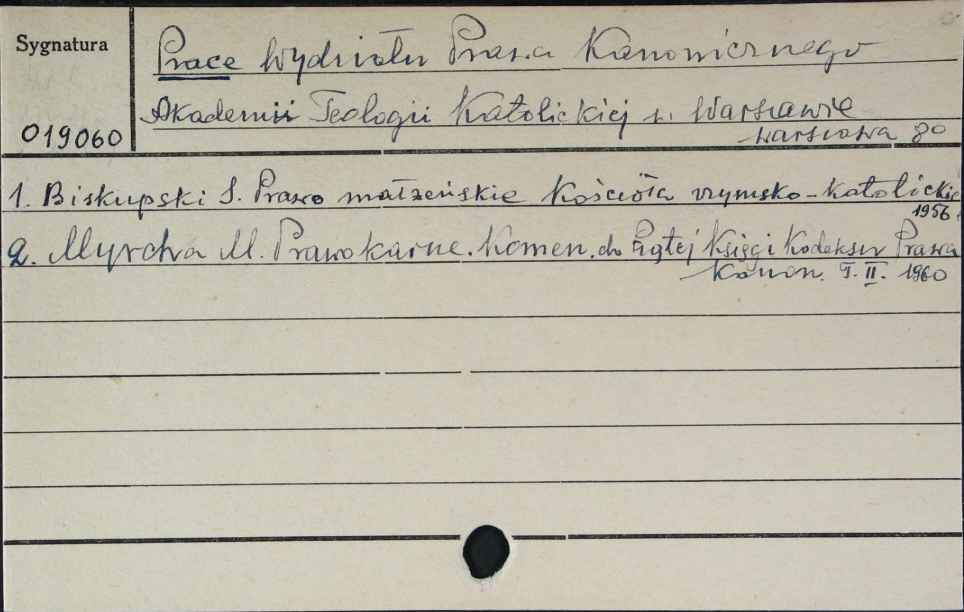 Sygnatura
Prace Wydziału Prawa Kanonicznego
Akademii Teologii Katolickiej w Warszawie
019060
Warszawa 80
1. Biskupski S. Prawo małżeńskie Kościoła rzymsko-katolickie
1956.
2. Myrcha M. Prawo karne. Komen. do Piątej Księgi Kodeksu Prawa
Kanon. T. II. 1960